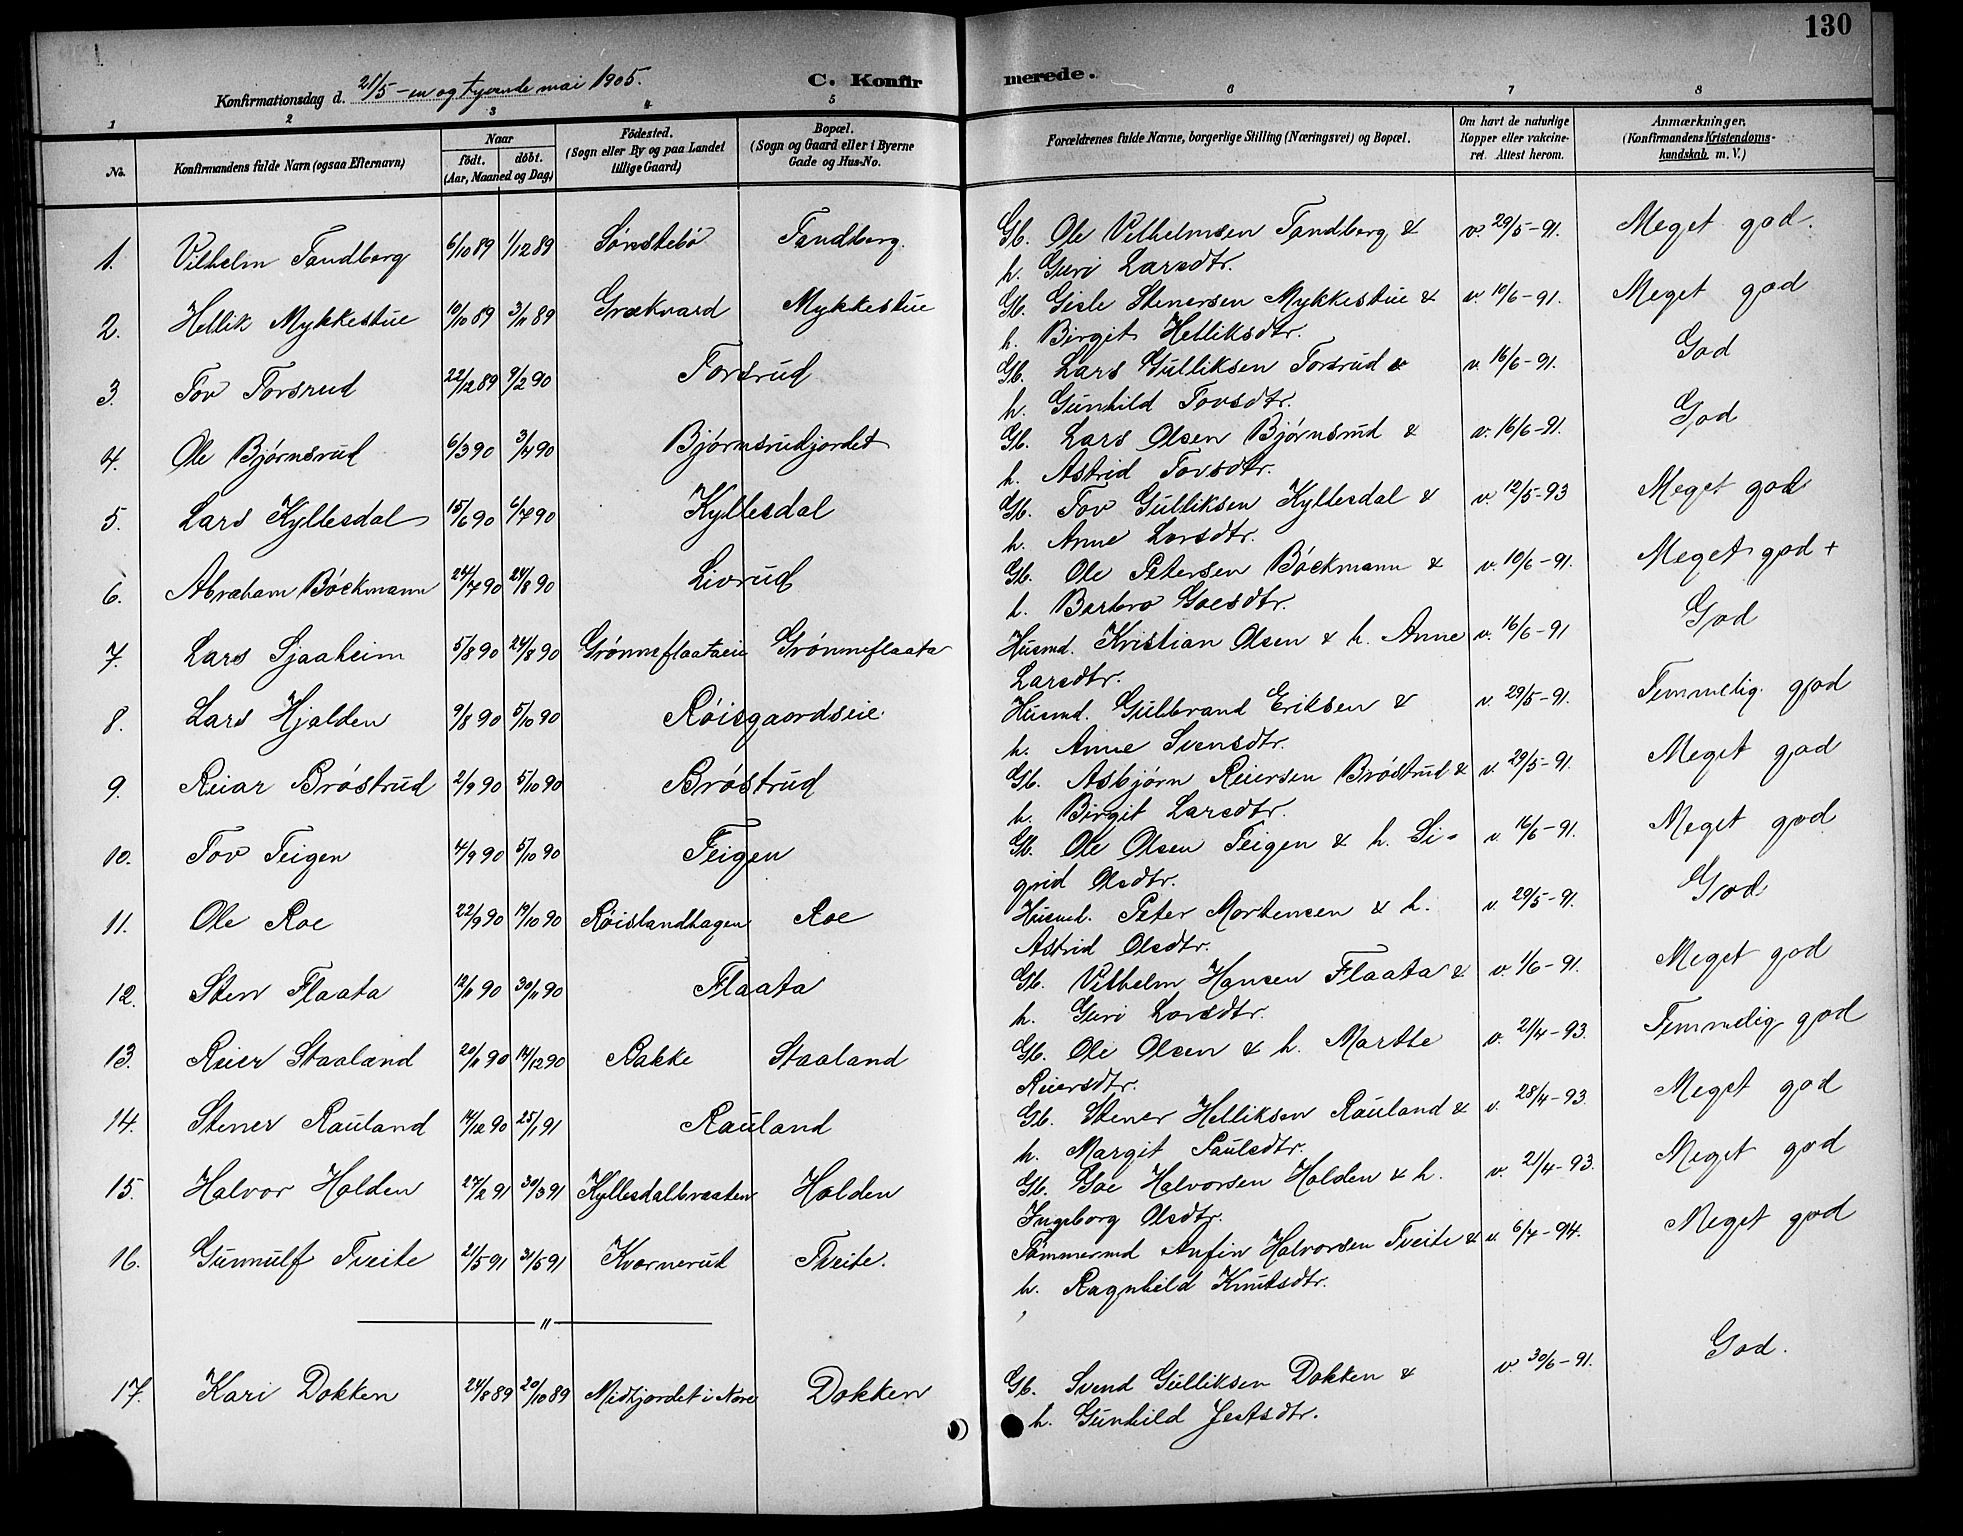 130
Konfirmationsdag d. 21/5 - en og tyvende mai 1905.
C. Konfirmerede.
1 2 3 4 5 6 7 8
No. Konfirmandens fulde Navn (ogsaa Efternavn) Naar født. døbt. (Aar, Maaned og Dag) Fødested. (Sogn eller By og paa Landet tillige Gaard) Bopæl. (Sogn og Gaard eller i Byerne Gade og Hus-No. Forældrenes fulde Navne, borgerlige Stilling (Næringsvei) og Bopæl. Om havt de naturlige Kopper eller vakcineret. Attest herom. Anmærkninger. (Konfirmandens Kristendomskundskab m. V.)
1. Vilhelm Tandberg 6/10 89 1/12 89 Sønstebø Tandberg. Gb. Ole Vilhelmsen Tandberg & v. 29/5-91. Meget god.
h. Guri Larsdtr.
2. Hellik Mykkestue 10/10 89 3/11 89 Grækvard Mykkestue Gb. Gisle Stenersen Mykkestue & v. 10/6-91. Meget god
h. Birgit Helliksdtr.
3. Tov Torsrud 22/12 89 9/2 90 Torsrud Gb. Lars Gulliksen Torsrud & v. 16/6-91. God
h. Gunhild Tovsdtr.
4. Ole Bjørnsrud 6/3 90 3/4 90 Bjørnsrudjordet Gb. Lars Olsen Bjørnsrud & v. 16/6-91. God
h. Astrid Tovsdtr.
5. Lars Kyllesdal 15/6 90 6/7 90 Kyllesdal Gb. Tov Gulliksen Kyllesdal & v. 12/5-93 Meget god
h. Anne Larsdtr.
6. Abraham Bøckmann 24/7 90 24/8 90 Livrud Gb. Ole Petersen Bøckmann & v. 10/6-91. Meget god +
h. Barbro Goesdtr.
7. Lars Sjaaheim 5/8 90 24/8 90 Grønneflaataeie Grønneflaata Husmd. Kristian Olsen & h. Anne v. 16/6-91 God
Larsdtr.
8. Lars Hjalden 9/8 90 5/10 90 Røisgaardseie Husmd. Gulbrand Eriksen & v. 29/5-91. Temmelig god
h. Anne Svensdtr.
9. Reiar Brøstrud 2/9 90 5/10 90 Brøstrud Gb. Asbjørn Reiersen Brøstrud & v. 29/5-91. Meget god
h. Birgit Larsdtr.
10. Tov Teigen 4/9 90 5/10 90 Teigen Gb. Ole Olsen Teigen & h. Si- v 16/6-91. Meget god
grid Olsdtr.
11. Ole Roe 22/9 90 19/10 90 Røislandhagen Roe Husmd. Peter Mortensen & h. v. 29/5-91. God
Astrid Olsdtr.
12. Sten Flaata 12/11 90 30/11 90 Flaata Gb. Vilhelm Hansen Flaata & v. 1/6-91. Meget god
h. Guri Larsdtr.
13. Reier Staaland 20/11 90 14/12 90 Bakke Staaland Gb. Ole Olsen & h. Marthe v. 21/4-93. Temmelig god
Reiersdtr.
14. Stener Rauland 14/12 90 25/1 91 Rauland Gb. Stener Helliksen Rauland & v. 28/4-93. Meget god
h. Margit Paulsdtr.
15. Halvor Holden 27/2 91 30/3 91 Kyllesdalbraaten Holden Gb. Goe Halvorsen Holden & h. v. 21/4-93. Meget god
Ingeborg Olsdtr.
16. Gunnulf Tveite 21/5 91 31/5 91 Kvornerud Tveite. Tømmermd Anfin Halvorsen Tveite & v. 6/4-94. Meget god
h. Ragnhild Knutsdtr.
"
17. Kari Dokken 24/8 89 20/10 89 Midtjordet i Nore Dokken Gb. Svend Gulliksen Dokken & v. 30/6-91. God.
h. Gunhild Jeatsdtr.